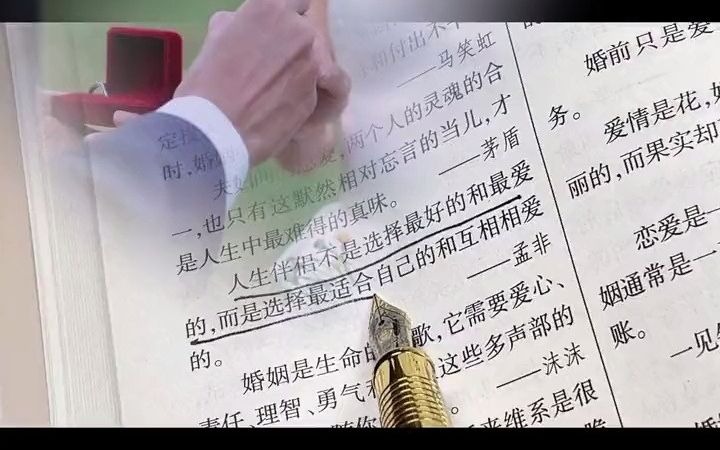 和付出不
——马笑虹
两个人的灵魂的合
时,婚
夫
忘言的当儿,才
一,也只有这默然相对
——茅盾
是人生中最难得的真味。
人生伴侣不是选择最好的和最爱
的,而是选择最适合自己的和互相相爱
的。
——孟非
婚姻是生命的
歌,它需要爱心、
责任、理智、勇气
这些多声部的
——沫沫
来维系是很
婚前只是爱
务。
爱情是花,
丽的,而果实却
恋爱是一
姻通常是一
账。
—见